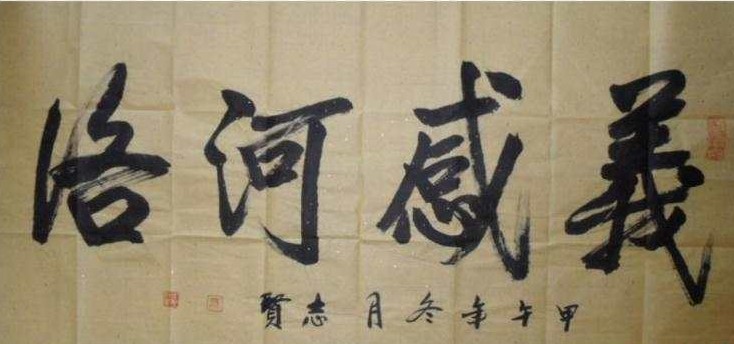 義感河洛
甲午年冬月志賢